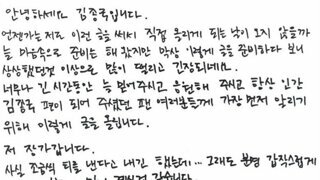 안녕하세요 김종국입니다.
언젠가는 저도 이런 글을 써서 직접 올리게 되는 날이 오지 않을까
늘 마음속으로 준비는 해 왔지만 막상 이렇게 글을 준비하다 보니
상상했던것 이상으로 많이 떨리고 긴장되네요.
너무나 긴 시간동안 늘 믿어주시고 응원해 주시고 항상 인간
김종국 편이 되어 주셨던 팬 여러분들께 가장 먼저 알리기
위해 이렇게 글을 올립니다.
저 장가갑니다.
사실 조금씩 티를 낸다고 내긴 했는데... 그래도 분명 갑작스럽게